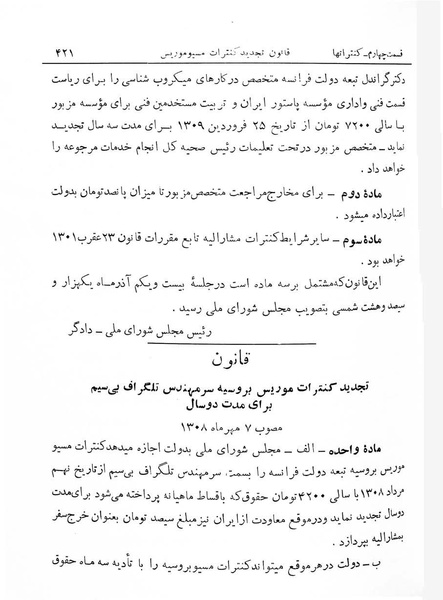 قسمت چهارم ـ کنتراتها قانون تجدید کنترات مسیو موریس ۴۲۱
دکتر گراندل تبعه دولت فرانسه متخصص در کارهای میکروب شناسی را برای ریاست
قسمت فنی و اداری مؤسسه پاستور ایران و تربیت مستخدمین فنی برای مؤسسه مزبور
با سالی ۷۲۰۰ تومان از تاریخ ۲۵ فروردین ۱۳۰۹ برای مدت سه سال تجدید
نماید ـ متخصص مزبور در تحت تعلیمات رئیس صحیه کل انجام خدمات مرجوعه را
خواهد داد .
مادهٔ دوم ـ برای مخارج مراجعت متخصص مزبور تا میزان پانصد تومان بدولت
اعتبار داده میشود .
مادهٔ سوم ـ سایر شرایط کنترات مشارالیه تابع مقررات قانون ۲۳ عقرب ۱۳۰۱
خواهد بود .
این قانون که مشتمل بر سه ماده است در جلسهٔ بیست و یکم آذر ماه یکهزار و
سیصد و هشت شمسی بتصویب مجلس شورای ملی رسید .
رئیس مجلس شورای ملی ـ دادگر
قانون
تجدید کنترات موریس بروسیه سر مهندس تلگراف بی‌سیم
برای مدت دو سال
مصوب ۷ مهر ماه ۱۳۰۸
مادهٔ واحده ـ الف ـ مجلس شورای ملی بدولت اجازه میدهد کنترات مسیو
موریس بروسیه تبعه دولت فرانسه را بسمت سرمهندس تلگراف بی‌سیم از تاریخ نهم
مرداد ۱۳۰۸ با سالی ۴۲۰۰ تومان حقوق که باقساط ماهیانه پرداخته می‌شود برای مدت
دو سال تجدید نماید و در موقع معاودت از ایران نیز مبلغ سیصد تومان بعنوان خرج سفر
بمشارالیه بپردازد .
ب ـ دولت در هر موقع میتواند کنترات مسیو بروسیه را با تأدیه سه ماه حقوق